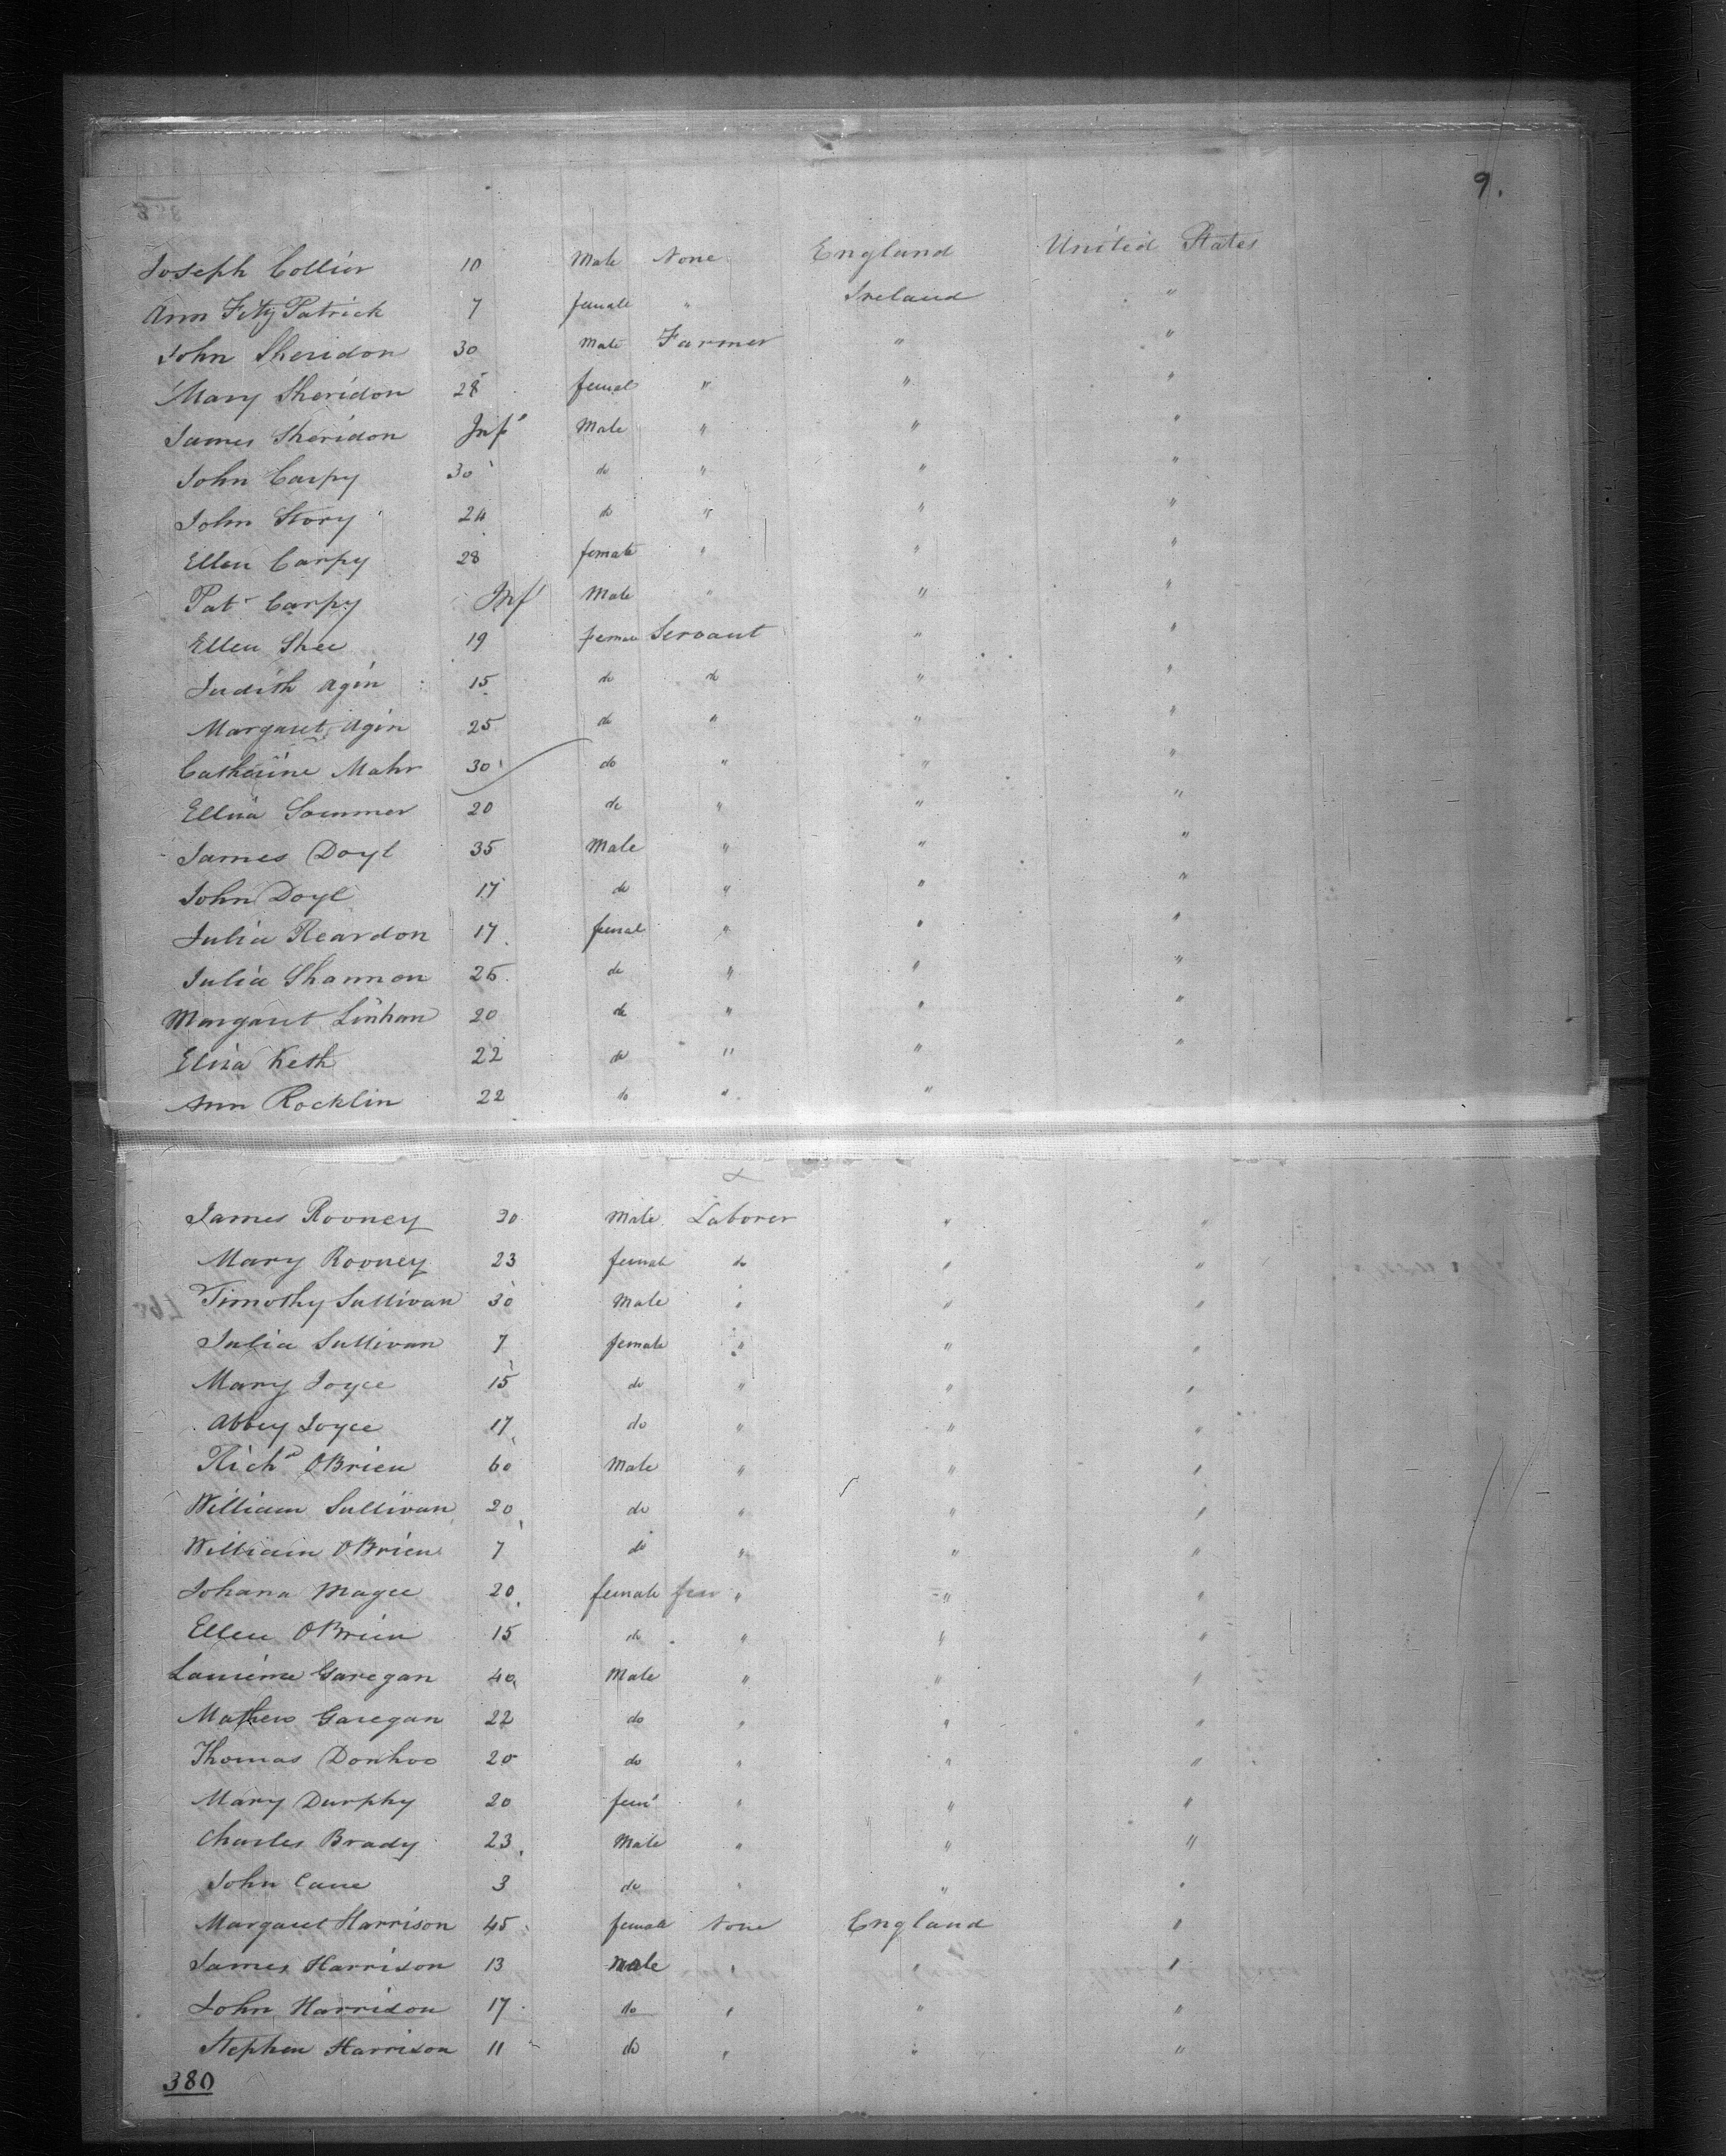 9.
Joseph Collier 10 Male None England United States
Ann FitzPatrick 7 female " Ireland "
John Sheridon 30 Male Farmer " "
Mary Sheridon 28 femal " " "
James Sheridon Inft Male " " "
John Carpy 30 do " " "
John Story 24 do " " "
Ellen Carpy 28 female " " "
Pat Carpy Inft Male " " "
Ellen Shee 19 female Servant " "
Judith Agin 15 do do " "
Margaret Agin 25 do " " "
Catherine Mahr 30 do " " "
Elliza Sommer 20 do " " "
James Doyl 35 Male " " "
John Doyl 17 do " " "
Julia Reardon 17 femal " " "
Julia Shannon 25 do " " "
Margaret Linhan 20 do " " "
Eliza Keth 22 do " " "
Ann Rocklin 22 do " "
James Rooney 30 Male Laborer " "
Mary Rooney 23 female do " "
Timothy Sullivan 30 Male " " "
Julia Sullivan 7 female " " "
Mary Joyce 15 do " " "
Abbey Joyce 17 do " " "
Richd OBrien 60 Male " " "
William Sullivan 20 do " " "
William OBrien 7 do " " "
Johana Magee 20 female " " "
Ellen OBrien 15 do " " "
Garegan 40 Male " " "
Mathew Garegan 22 do " " "
Thomas Donhoo 20 do " " "
Mary Durphy 20 fem " " "
Charles Brady 23 Male " " "
John Cane 3 do " " "
Margaret Harrison 45 female None England "
James Harrison 13 Male " " "
John Harrison 17 do " " "
Stephen Harrison 11 do " " "
380